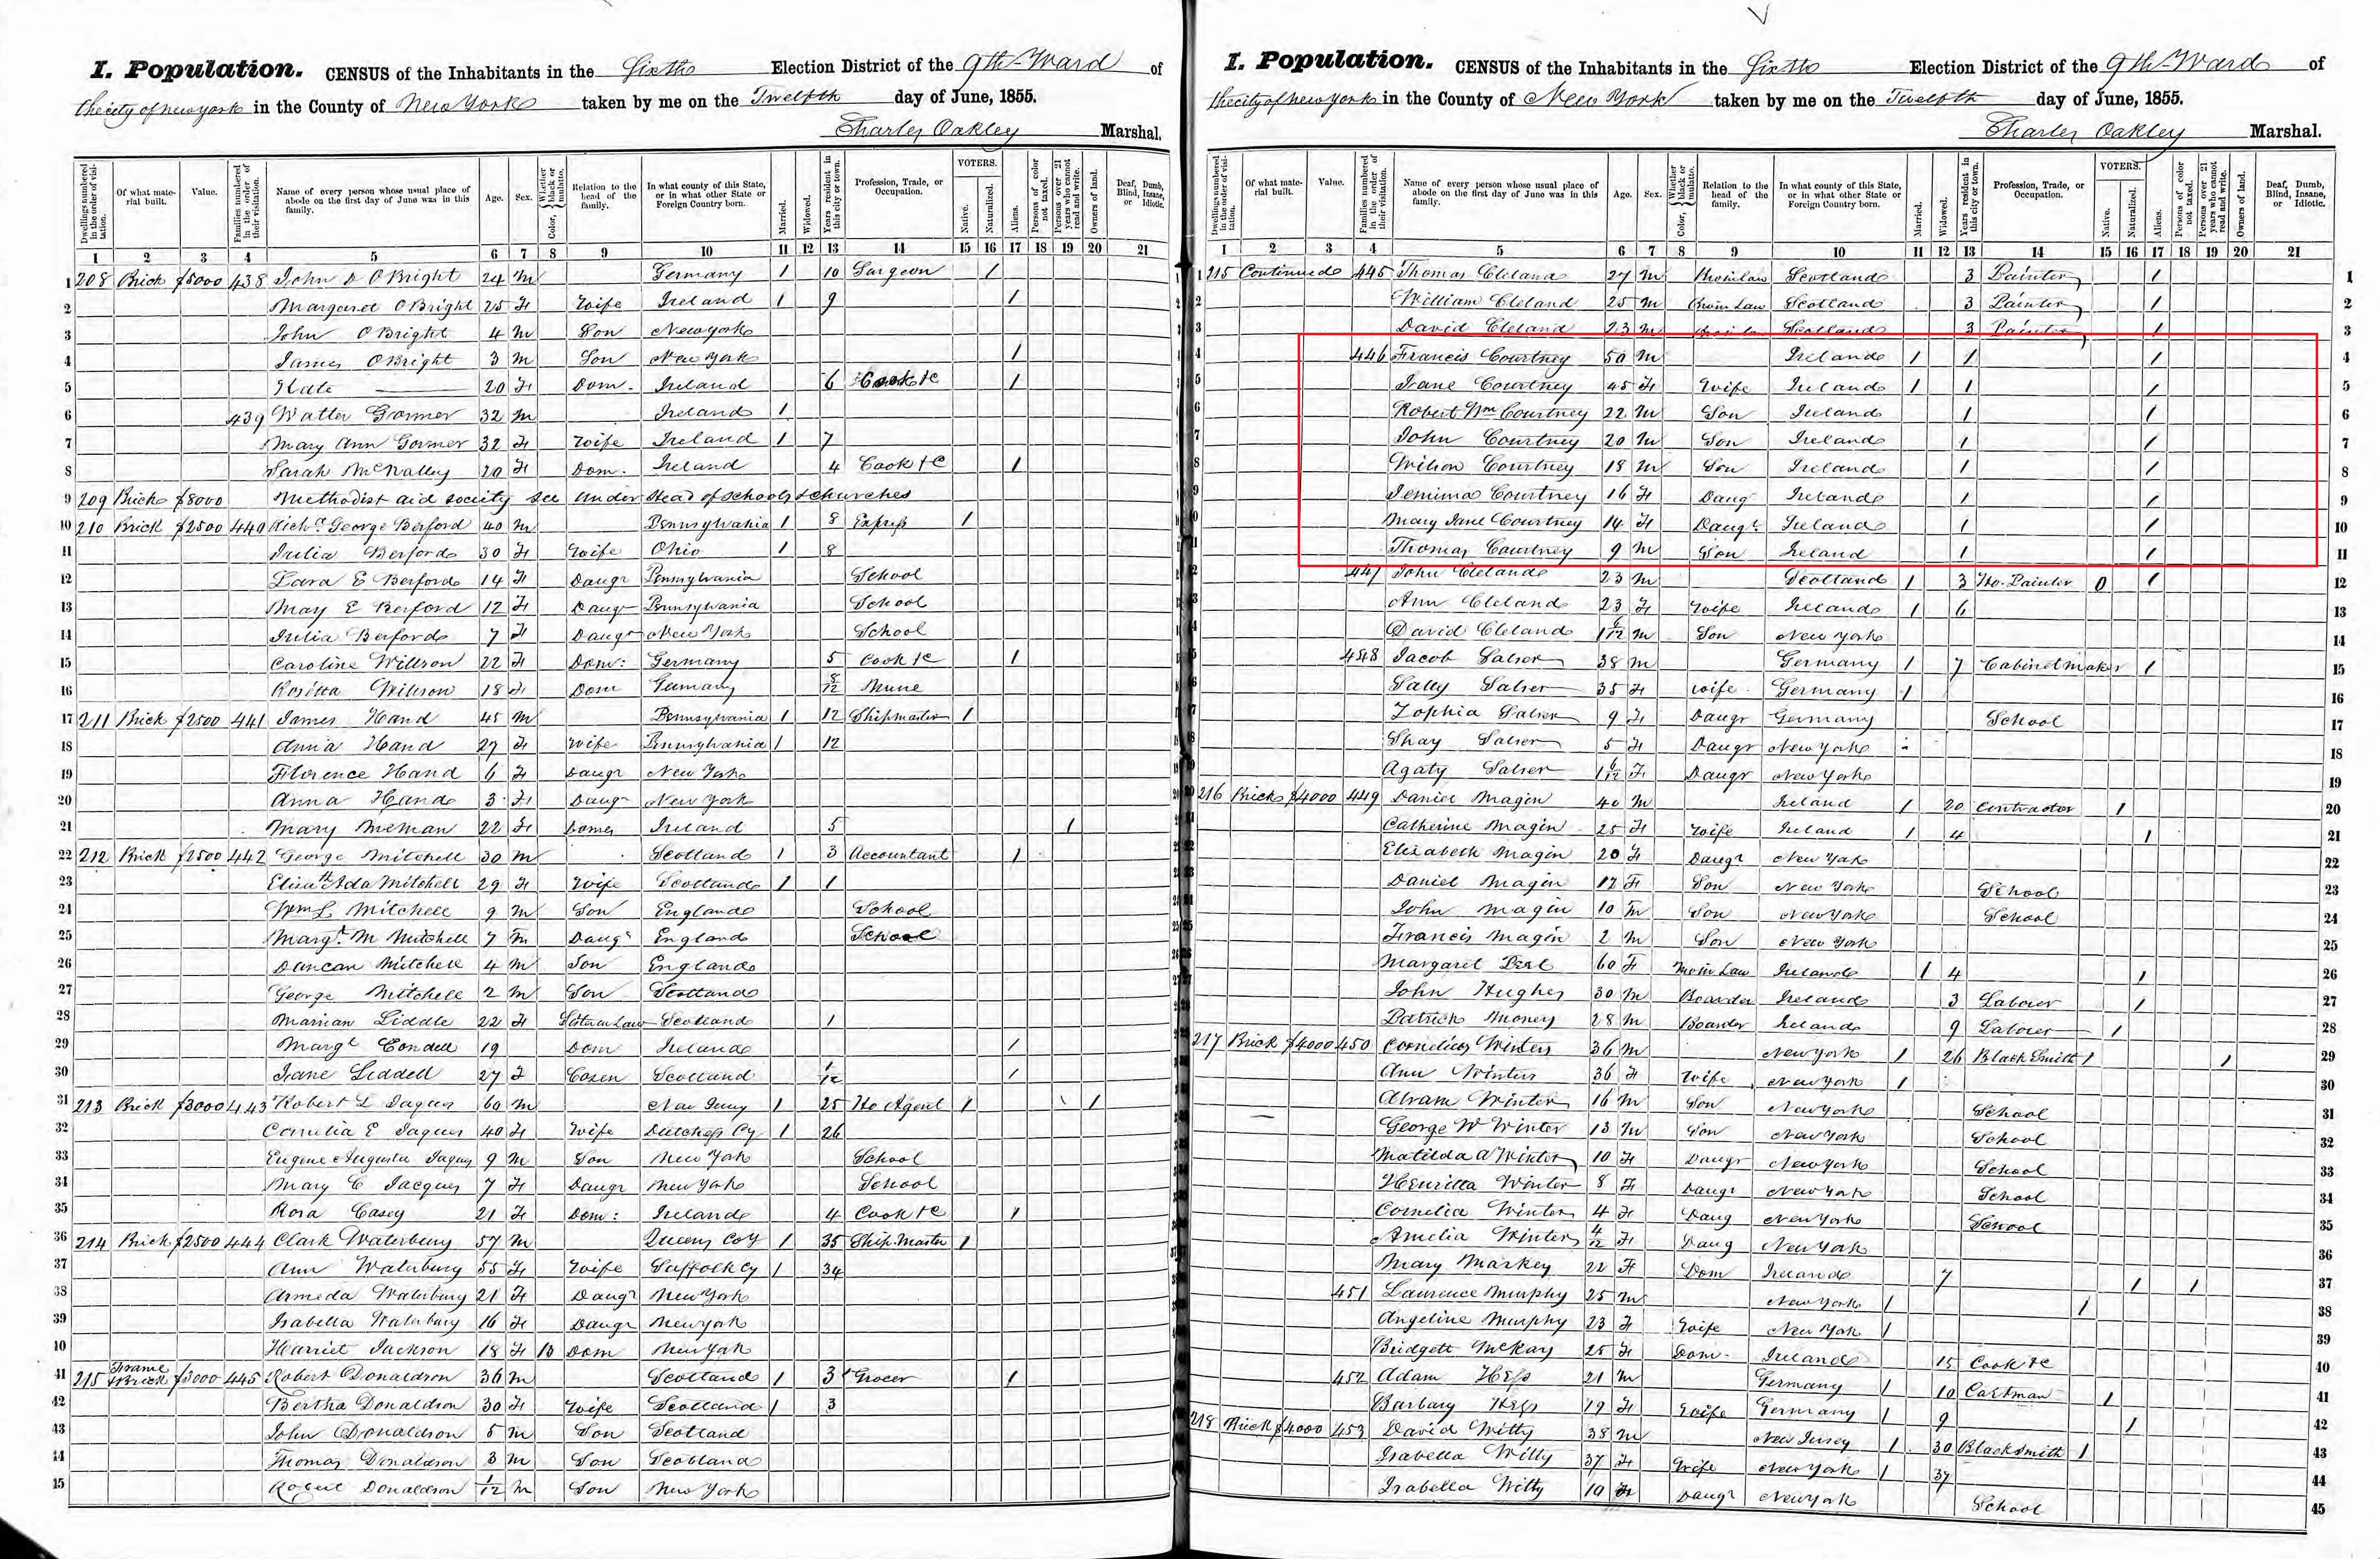 I. Population. CENSUS of the Inhabitants in the Sixth Election District of the 9th Ward of
the city of new york in the County of New York taken by me on the Twelfth day of June, 1855.
Charles Oakley Marshal.
Dwellings numbered in the order of visitation. Of what material built. Value. Families numbered in the order of their visitation. Name of every person whose usual place of abode on the first day of June was in this family. Age. Sex. Color, Whether black or mulatto. Relation to the head of the family. In what county of this State, or in what other State or Foreign Country born. Married. Widowed. Years resident in this city or town. Profession, Trade, or Occupation. VOTERS. Native. Naturalized. Aliens. Persons of color not taxed. Persons over 21 years who cannot read and write. Owners of land. Deaf, Dumb, Blind, Insane, or Idiotic.
1 2 3 4 5 6 7 8 9 10 11 12 13 14 15 16 17 18 19 20 21
1 208 Brick $5000 438 John D O Bright 24 M Germany 1 10 Surgeon 1
2 Margaret O Bright 25 F Wife Ireland 1 9 1
3 John O Bright 4 M Son New York
4 James O Bright 3 M Son New York 1
5 Kate 20 F Dom. Ireland 6 Cook &c 1
6 439 Walter Gormer 32 M Ireland 1
7 Mary Ann Gormer 32 F Wife Ireland 1 7
8 Sarah McNalley 20 F Dom. Ireland 4 Cook &c 1
9 209 Brick $8000 Methodist aid society see under Head of schools & churches
10 210 Brick $2500 440 Richd George Berford 40 M Pennsylvania 1 8 Express 1
11 Julia Berford 30 F Wife Ohio 1 8
12 E Berford 14 F Daugr Pennsylvania School
13 May E Berford 12 F Daugr Pennsylvania School
14 Julia Berford 7 F Daugr New York School
15 Caroline Willson 22 F Dom: Germany 5 Cook &c 1
16 Rositta Willson 18 F Dom Germany 8/12 Nurse
17 211 Brick $2500 441 James Hand 45 M Pennsylvania 1 12 Shipmaster 1
18 Anna Hand 27 F Wife Pennsylvania 1 12
19 Florence Hand 6 F Daugr New York
20 Anna Hand 3 F Daugr New York
21 Mary 22 F Domes Ireland 5 1
22 212 Brick $2500 442 George Mitchell 30 M Scotland 1 3 Accountant 1
23 Elizath Ada Mitchell 29 F Wife Scotland 1 1
24 Wm L Mitchell 9 M Son England School
25 Margt. M Mitchell 7 M Daugr England School
26 Duncan Mitchell 4 M Son England
27 George Mitchell 2 M Son Scotland
28 Marian Liddle 22 F Sister in Law Scotland 1
29 Margt Condell 19 Dom Ireland 1
30 Jane Liddell 27 F Cosen Scotland 1/12 1
31 213 Brick $3000 443 Robert L Jaques 60 M New Jersey 1 25 Ho Agent 1 1
32 Cornelia E Jaques 40 F Wife Dutchess Cy 1 26
33 Eugene Augusta Jaques 9 M Son New York School
34 Mary C Jacques 7 F Daugr New York School
35 Rosa Casey 21 F Dom: Ireland 4 Cook &c 1
36 214 Brick $2500 444 Clark Waterbury 57 M Queens Coy 1 35 Ship Master 1
37 Ann Waterbury 55 F Wife Suffolk Cy 1 34
38 Armeda Waterbury 21 F Daugr New York
39 Isabella Waterbury 16 F Daugr New York
10 Harriet Jackson 18 F B Dom New York
41 215 Frame & Brick $3000 445 Robert Donaldson 36 M Scotland 1 3 Grocer 1
42 Bertha Donaldson 30 F Wife Scotland 1 3
43 John Donaldson 5 M Son Scotland
44 Thomas Donaldson 3 M Son Scotland
45 Robert Donaldson 1/12 M Son New York
I. Population. CENSUS of the Inhabitants in the Sixth Election District of the 9th Ward of
the city of new york in the County of New York taken by me on the Twelfth day of June, 1855.
Charles Oakley Marshal.
Dwellings numbered in the order of visitation. Of what material built. Value. Families numbered in the order of their visitation. Name of every person whose usual place of abode on the first day of June was in this family. Age. Sex. Color, Whether black or mulatto. Relation to the head of the family. In what county of this State, or in what other State or Foreign Country born. Married. Widowed. Years resident in this city or town. Profession, Trade, or Occupation. VOTERS. Native. Naturalized. Aliens. Persons of color not taxed. Persons over 21 years who cannot read and write. Owners of land. Deaf, Dumb, Blind, Insane, or Idiotic.
1 2 3 4 5 6 7 8 9 10 11 12 13 14 15 16 17 18 19 20 21
1 215 Continued 445 Thomas Cleland 27 M Scotland 3 Painter 1 1
2 William Cleland 25 M Scotland 3 Painter 1 2
3 David Cleland 23 M Scotland 3 Painter 1 3
4 446 Francis Courtney 50 M Ireland 1 1 1 4
5 Jane Courtney 45 F Wife Ireland 1 1 1 5
6 Robert Wm Courtney 22 M Son Ireland 1 1 6
7 John Courtney 20 M Son Ireland 1 1 7
8 Wilson Courtney 18 M Son Ireland 1 1 8
9 Jemima Courtney 16 F Daug Ireland 1 1 9
10 Mary Jane Courtney 14 F Daugr Ireland 1 1 10
11 Thomas Courtney 9 M Son Ireland 1 1 11
12 447 John Cleland 23 M Scotland 1 3 Ho. Painter 0 1 12
13 Ann Cleland 23 F Wife Ireland 1 6 13
14 David Cleland 1 6/12 M Son New York 14
15 448 Jacob Salser 38 M Germany 1 7 Cabinet maker 1 15
16 Sally Salser 35 F Wife Germany 1 16
17 Zophia Salser 9 F Daugr Germany School 17
18 Shay Salser 5 F Daugr New York 18
19 Agaty Salser 1 6/12 F Daugr New York 19
20 216 Brick $4000 449 Daniel Magin 40 M Ireland 1 20 Contractor 1 20
21 Catherine Magin 25 F Wife Ireland 1 4 1 21
22 Elizabeth Magin 20 F Daugr New York 22
23 Daniel Magin 12 F Son New York School 23
24 John Magin 10 M Son New York School 24
25 Francis Magin 2 M Son New York 25
26 Margaret 60 F Mo in Law Ireland 1 4 1 26
27 John Hughes 30 M Boarder Ireland 3 Labourer 1 27
28 Patrick Money 28 M Boarder Ireland 9 Labourer 1 28
217 Brick $4000 450 Cornelius Winters 36 M New York 1 26 Black Smith 1 1 29
Ann Winters 36 F Wife New York 1 30
Abram Winter 16 M Son New York School 31
George W Winter 13 M Son New York School 32
Matilda A Winter 10 F Daugr New York School 33
Henritta Winter 8 F Daugr New York School 34
Cornelia Winter 4 F Daug New York School 35
Amelia Winters 4/12 F Daug New York 36
Mary Markey 22 F Dom Ireland 7 1 1 37
451 Lawrence Murphy 25 M New York 1 1 38
Angeline Murphy 23 F Wife New York 1 39
Bridgett McKay 25 F Dom. Ireland 15 Cook &c 40
452 Adam Hess 21 M Germany 1 10 Cartman 1 41
Barbary Hess 19 F Wife Germany 1 9 1 42
218 Brick $4000 453 David Witty 38 M New Jersey 1 30 Blacksmith 1 43
Isabella Witty 37 F Wife New York 1 37 44
Isabella Witty 10 F Daugr New York School 45